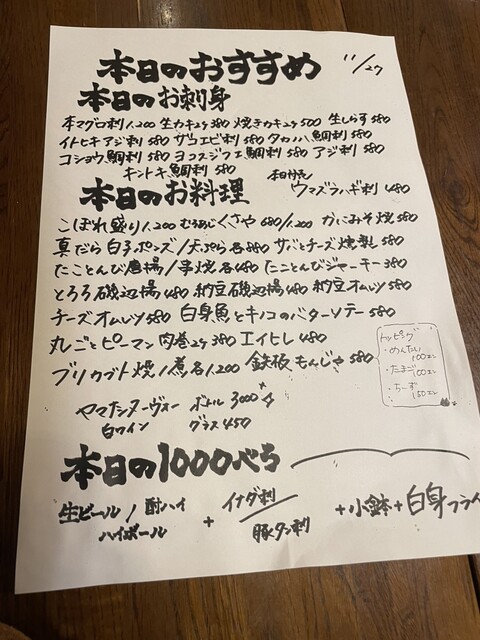 本日のおすすめ 11/27
本日のお刺身
本マグロ刺1.200 生カキ2ヶ380 焼きカキ2ヶ500 生しらす580
イトヒキアジ刺580 ザコエビ刺580 タカノハ鯛刺580
コショウ鯛刺580 ヨコスジフエ鯛刺580 アジ刺580
キントキ鯛刺580 ウマズラハギ刺480
本日のお料理
こぼれ盛り1.200 むろあじくさや680/1.200 かにみそ焼580
真だら白子ポンズ/天ぷら各880 サバとチーズ燻製580
たことんび唐揚/串焼各480 たことんびジャーキー380
とろろ磯辺揚480 納豆磯辺揚480 納豆オムレツ580
チーズオムレツ580 白身魚とキノコのバターソテー580
丸ごとピーマン肉巻2ヶ380 エイヒレ480
ブリカブト焼/煮各1.200 鉄板もんじゃ580
トッピング
・めんたい
100エン
・たまご100エン
・ちーず
150エン
ヤマナシヌーヴォー ボトル3000
白ワイン グラス450
本日の1000べろ
生ビール/酎ハイ
ハイボール
+ イナダ刺
豚タン刺
+小鉢+白身フライ